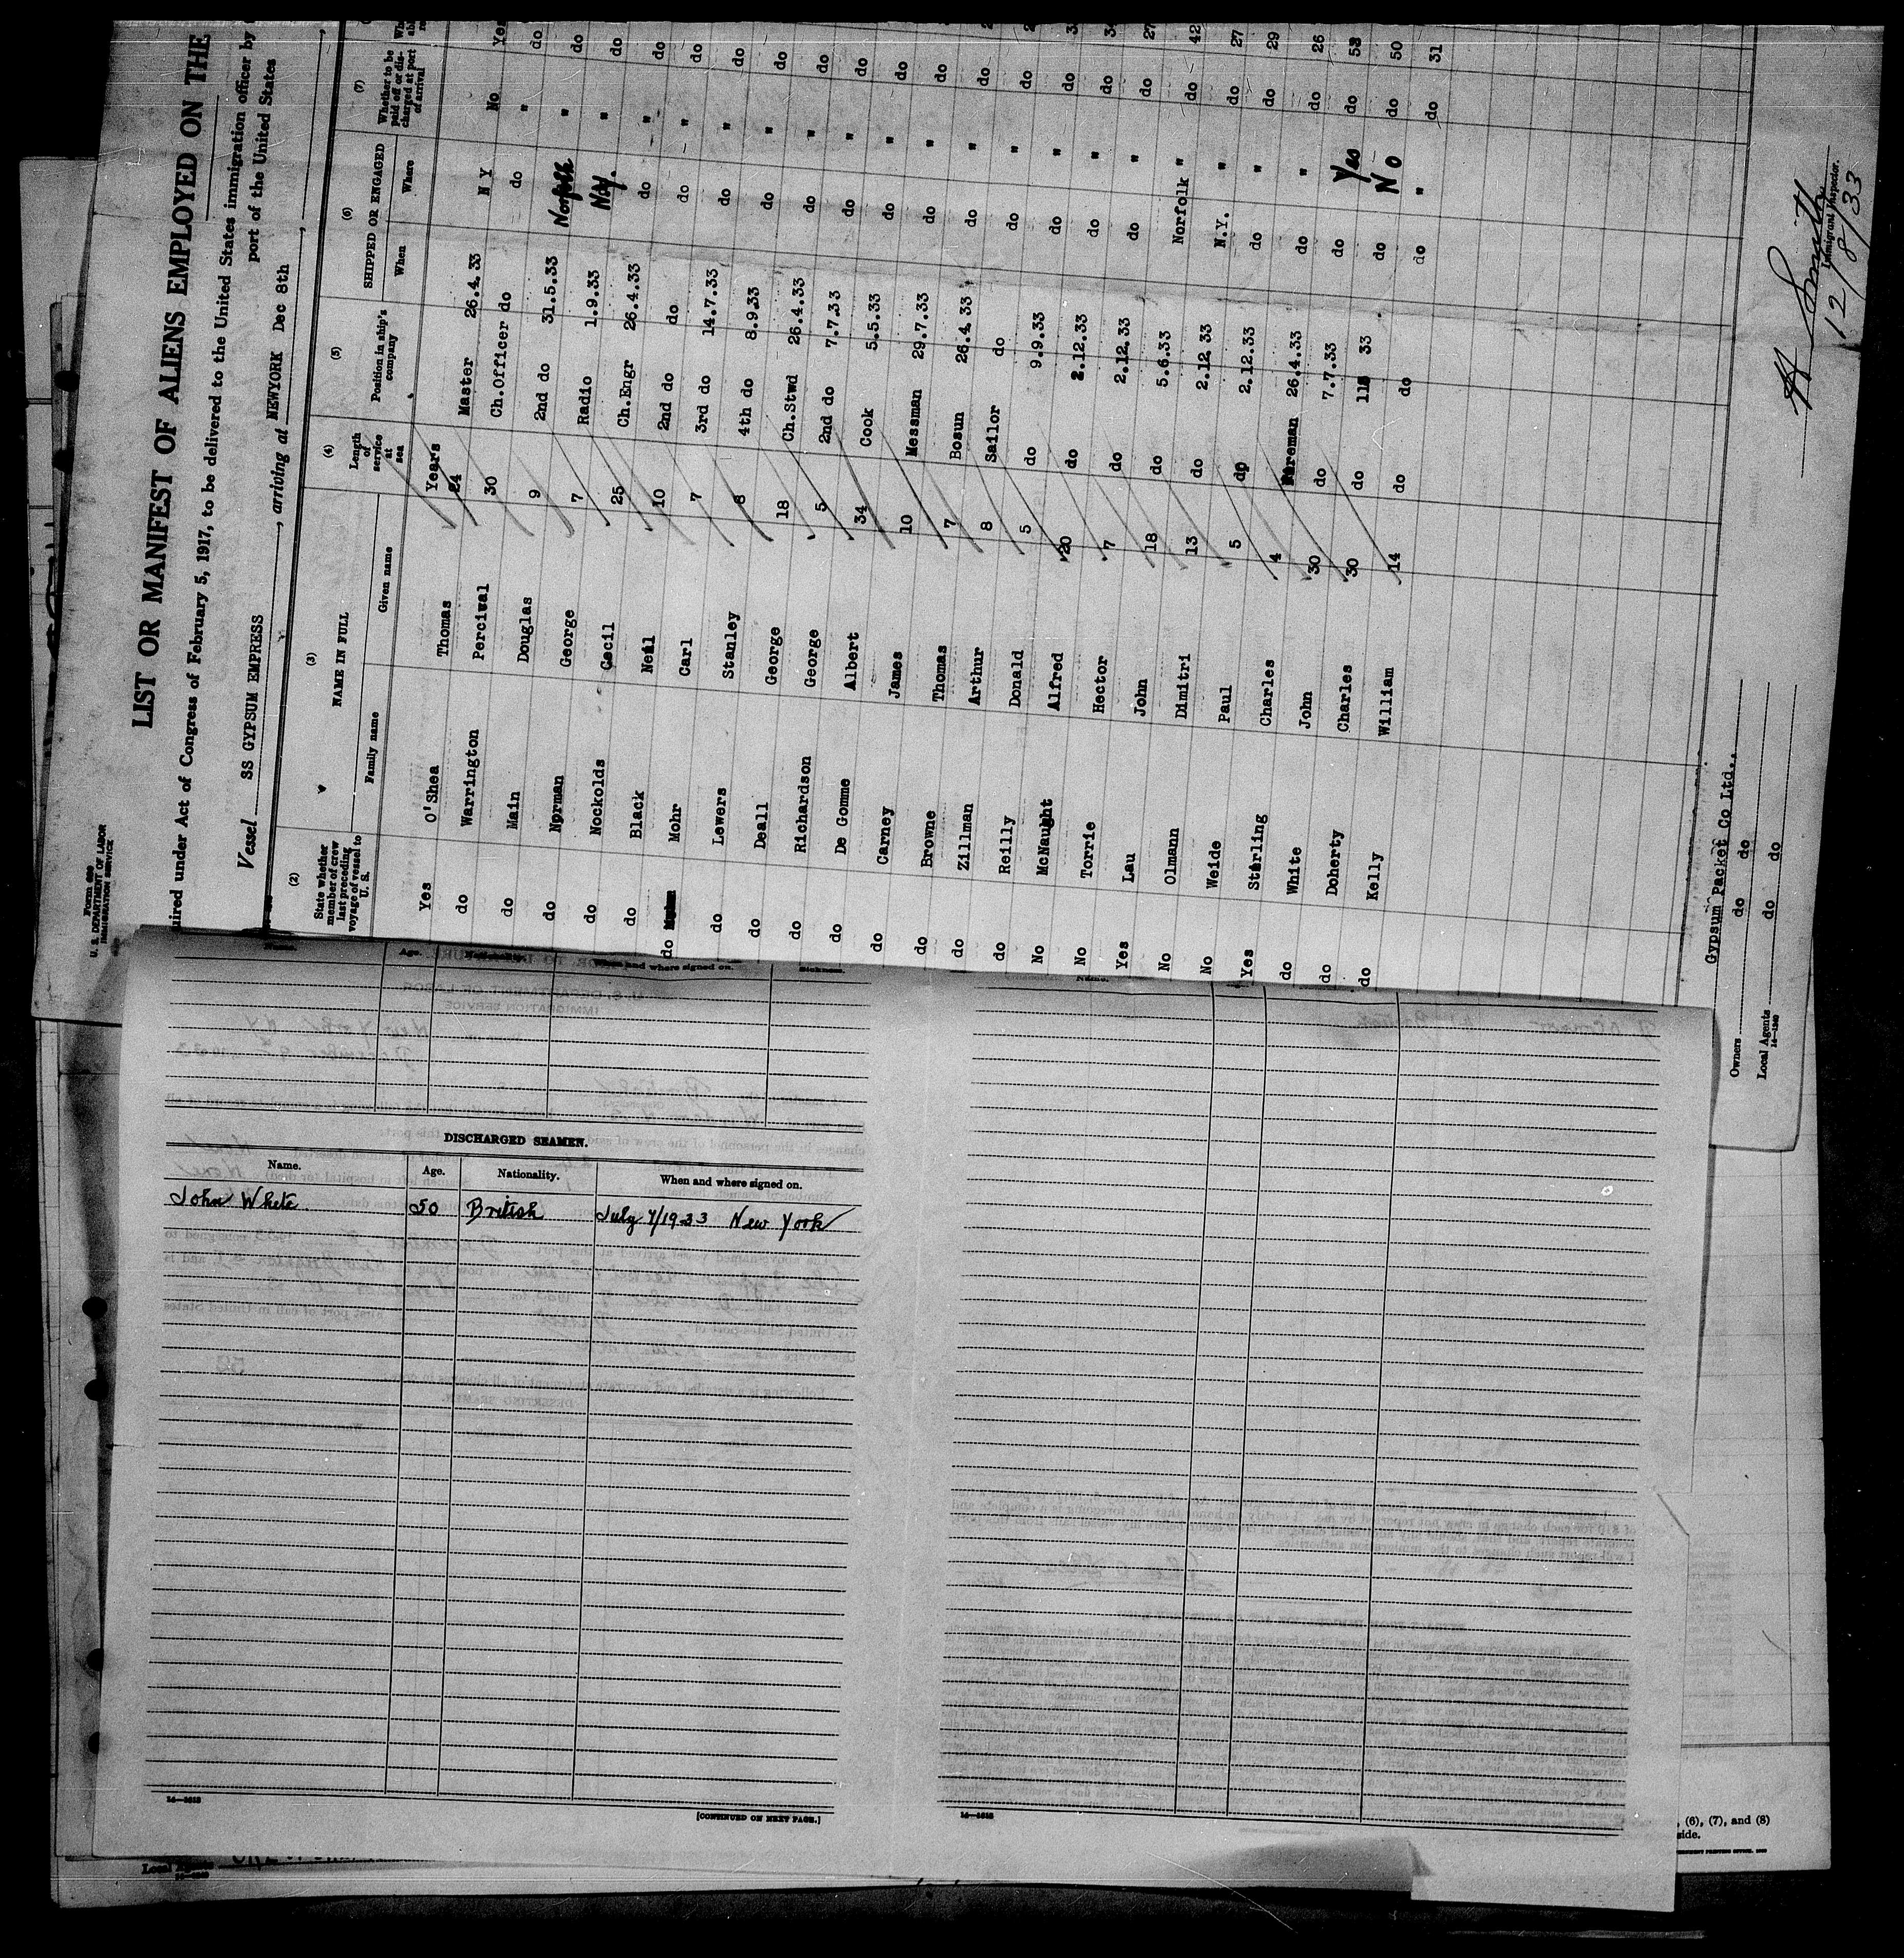 Form 689
U. S. DEPARTMENT OF LABOR
IMMIGRATION SERVICE
LIST OR MANIFEST OF ALIENS EMPLOYED ON THE
uired under Act of Congress of February 5, 1917, to be delivered to the United States immigration officer by
port of the United States
Vessel SS GYPSUM EMPRESS, arriving at NEWYORK Dec 8th,
(2) (3) (4) (5) (6) (7)
State whether member of crew last preceding voyage of vessel to U. S. NAME IN FULL Family name Given name Length of service at sea Position in ship's company SHIPPED OR ENGAGED When Where Whether to be paid off or discharged at port of arrival
Years
Yes O'Shea Thomas 24 Master 26.4.33 N Y No Yes
do Warrington Percival 30 Ch.Officer do do " do
do Main Douglas 9 2nd do 31.5.33 Norfolk " do
do Norman George 7 Radio 1.9.33 N.Y. " do
do Nockolds Cecil 25 Ch.Engr 26.4.33 do " do
do Black Neil 10 2nd do do do " do
do Mohr Carl 7 3rd do 14.7.33 do " do
do Lewers Stanley 8 4th do 8.9.33 do " do
do Deall George 18 Ch.Stwd 26.4.33 do " do
do Richardson George 5 2nd do 7.7.33 do " do
do De Gomme Albert 34 Cook 5.5.33 do " do
do Carney James 10 Messman 29.7.33 do " do
do Browne Thomas 7 Bosun 26.4.33 do " do
do Zillman Arthur 8 Sailor do do " do
do Reilly Donald 5 do 9.9.33 do " do
No McNaught Alfred 20 do 2.12.33 do " do
No Torrie Hector 7 do 2.12.33 do " do 27
Yes Lau John 18 do 5.6.33 Norfolk " do 42
No Olmann Dimitri 13 do 2.12.33 N.Y. " do 27
No Weide Paul 5 do 2.12.33 do " do 29
Yes Starling Charles 4 Fireman 26.4.33 do " do 26
do White John 30 do 7.7.33 do Yes do 53
do Doherty Charles 30 do 33 do No do 50
do Kelly William 14 do do do " do 31
Owners Gypsum Packet Co Ltd.,
do do
Local Agents do do
14—1240
H Smith
Immigrant Inspector.
12/8/33
Age. Nationality. When and where signed on. Sickness.
Name.
DISCHARGED SEAMEN.
Name. Age. Nationality. When and where signed on.
John White 50 British July 7/1933 New York
14—1618
[CONTINUED ON NEXT PAGE.]
14—1618
, (6), (7), and (8)
side.